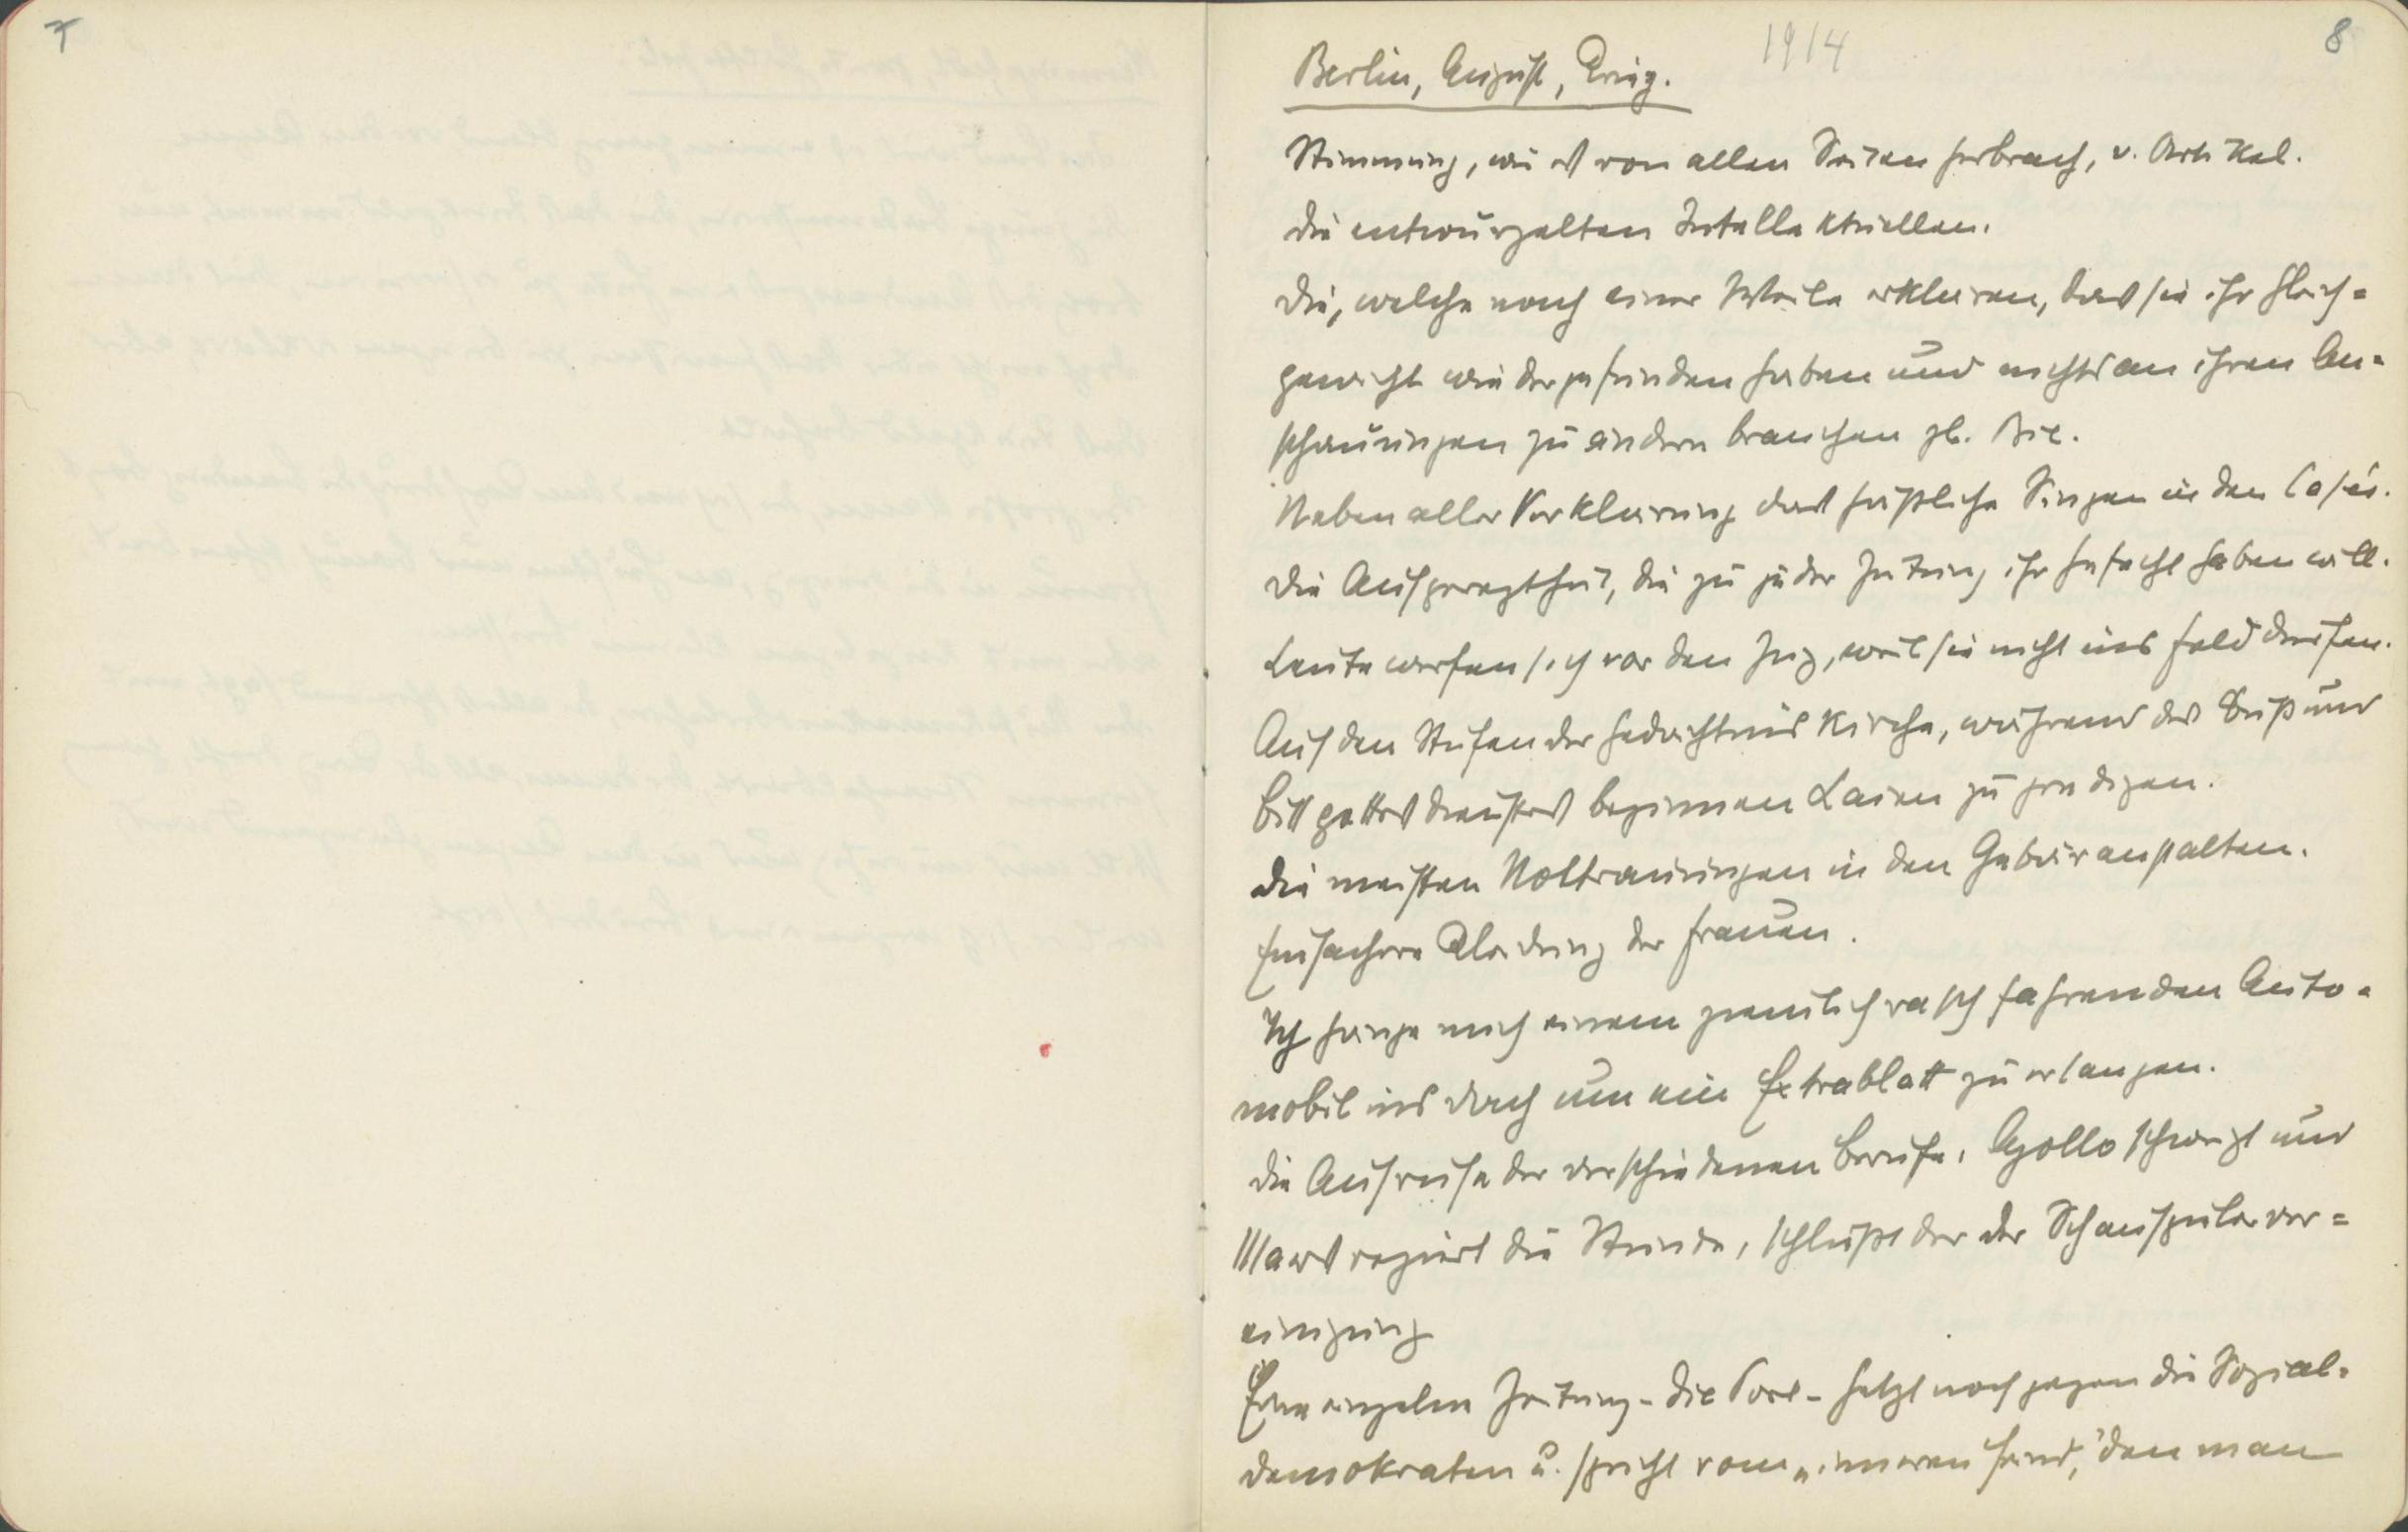 7
1914
8
Berlin, August, Krieg.
Stimmung, wie es von allen Seiten herbrach, v. Artikel.
Die entwurzelten Intellektuellen.
Die, welche nach einer Weile erklären, dass sie ihr Gleich=
gewicht wiedergefunden haben und nichts an ihren An=
schauungen zu ändern brauchen zb. Bie.
Neben aller Verklärung das häßliche Singen in den Cafés.
Die Aufgeregtheit, die zu jeder Zeitung ihr Gefecht haben will.
Leute werfen sich vor den Zug, weil sie nicht ins Feld dürfen.
Auf den Stufen der Gedächtniskirche, während des Buß und
Bittgottesdienstes beginnen Laien zu predigen.
Die meisten Nottrauungen in den Gebäranstalten.
Einfachere Kleidung der Frauen.
Ich hänge mich einem ziemlich rasch fahrenden Auto=
mobil ins Dach um ein Extrablatt zu erlangen.
Die Aufrufe der verschiedenen Berufe. Apollo schweigt und
Mars regiert die Stunde, schließt der der Schauspielerver=
einigung
Eine einzelne Zeitung – Die Post – hetzt noch gegen die Sozial=
demokraten u. spricht vom „inneren Feind," den man